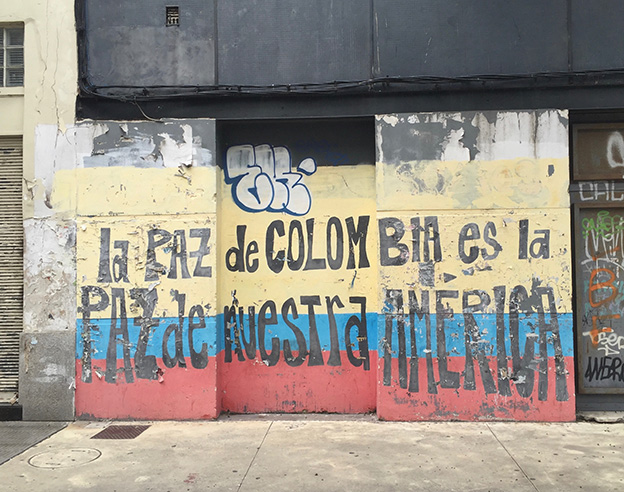 la PAZ de COLOMBIA es la
PAZ de nuestra AMÉRICA